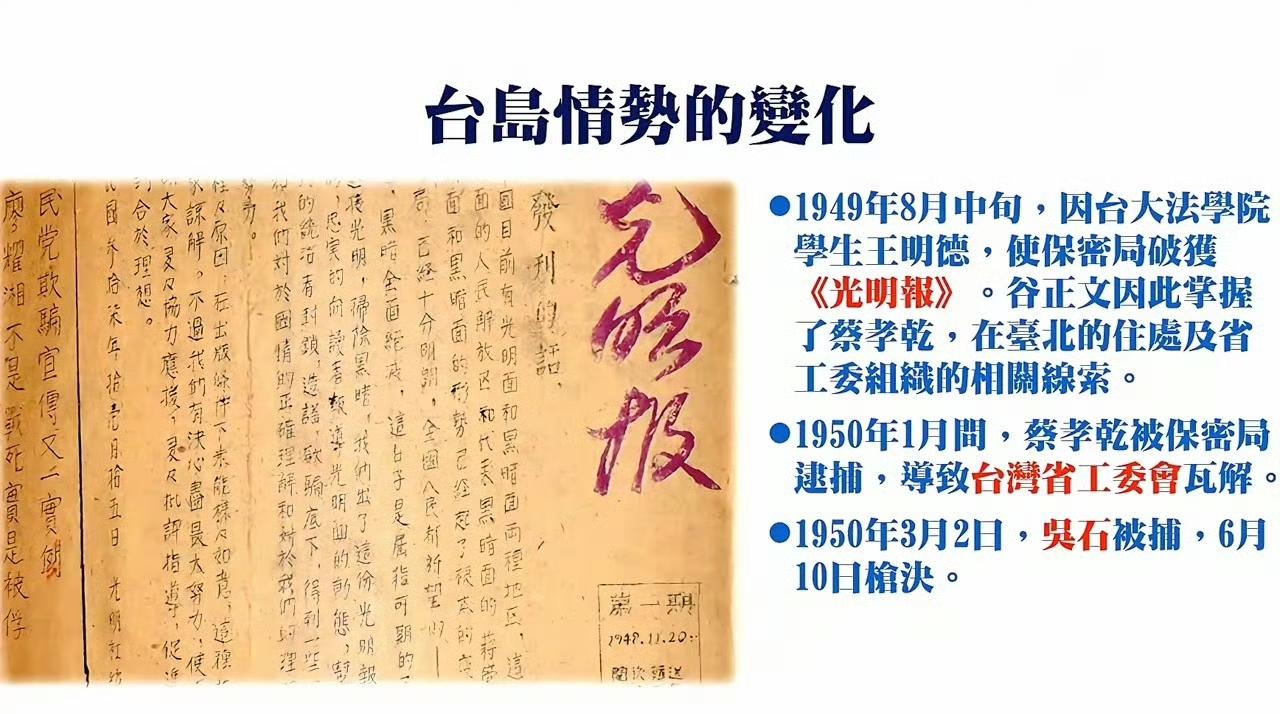 台島情勢的變化
●1949年8月中旬，因台大法學院
學生王明德，使保密局破獲
《光明報》。谷正文因此掌握
了蔡孝乾，在臺北的住處及省
工委組織的相關線索。
●1950年1月間，蔡孝乾被保密局
逮捕，導致台灣省工委會瓦解。
●1950年3月2日，吳石被捕，6月
10日槍決。
光明报
第一期
1948.11.20
發刊的話
面目前有光明面和黑暗面兩種地区，這
面的人民解放区和代表黑暗面的蔣
面和黑暗面的形勢已經起了
局，已經十分明朗，全國人民都
黑暗全面
接光明，掃除黑暗，我們出了這份光明報
忠實的向讀者報導光明面的動態，
封鎖，造謠，欺騙底下，得到一些
我們对於國情的正確理解和对於我們的
原因，在出版條件下未能樣樣如意，這種
諒解。不過我們有決心盡最大努力，使
大家予以協力應援，予以批評指導，促進
合於理想。
國參拾柒年拾壹月拾五日 光明社
民党欺騙宣傳又一實例
廖耀湘不是戰死實是被俘